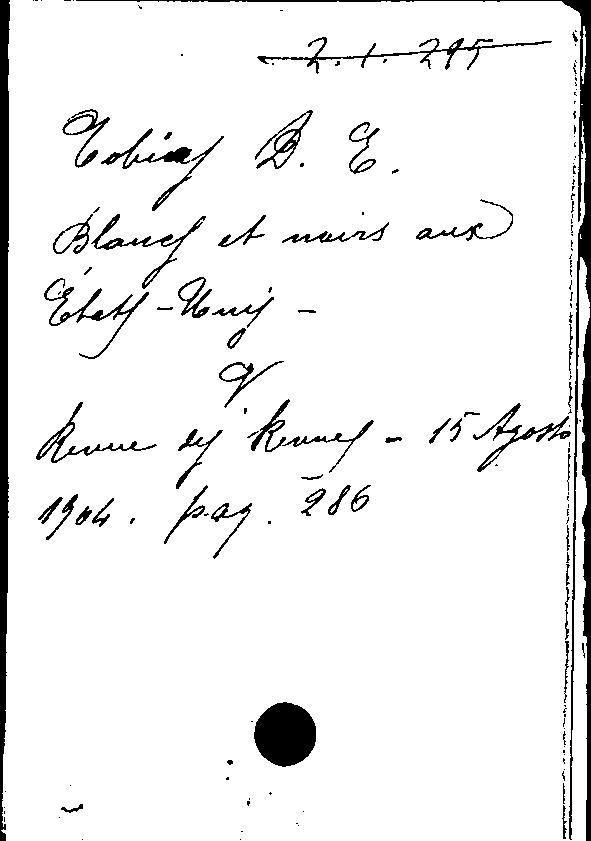 2.1.295
Tobias D. E.
Blancs et noirs aux
États-Unis -
V
Revue des Revues - 15 Agosto
1904. pag. 286